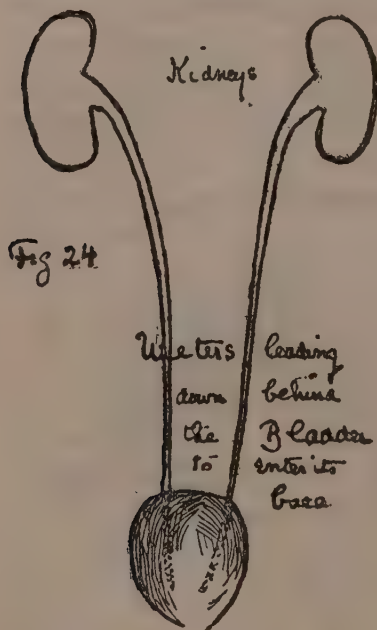 Kidneys
Fig 24
Ureters leading
down behind
the Bladder
to enter its
base